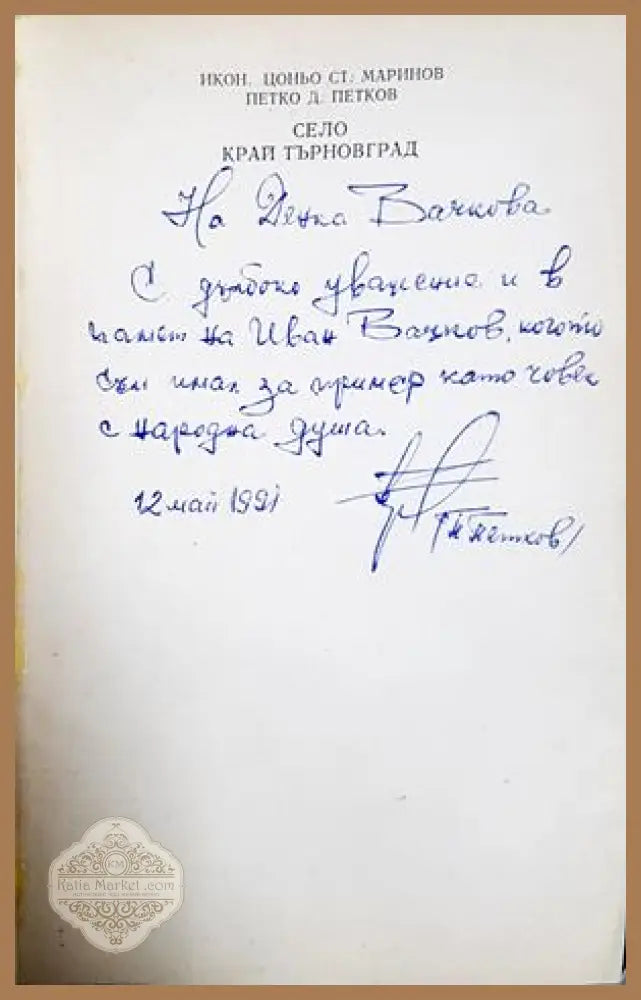 ИКОН. ЦОНЬО СТ. МАРИНОВ
ПЕТКО Д. ПЕТКОВ
СЕЛО
КРАЙ ТЪРНОВГРАД
На Денка Вачкова
С дълбоко уважение и в
памет на Иван Вачков, когото
съм имал за пример като човек
с народна душа.
12 май 1991
Петков/
KM
Katia Market .com